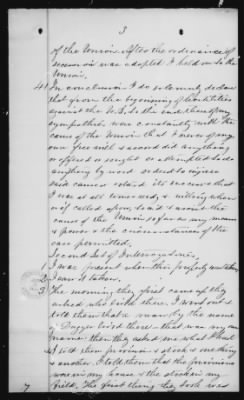 3
of the Union. After the ordinance of
secession was adopted I held on to the
Union.
41 In conclusion I do solemnly declare
that from the beginning of hostilities
against the U.S. to the end thereof my
sympathies was constantly with the
cause of the Union that I never of my
own free will & accord did anything
or offered or sought or attempted to do
anything by word or deed to injure
said cause or retard its success & that
I was at all times ready & willing when
or if called upon, to aid & assist the
cause of the Union so far as my means
& power & the circumstances of the
case permitted.
Second Set of Interrogatories.
1 I was present when this property was taken
2 I saw it taken.
3 The morning they first came up they
asked who lived there. I went out &
told them that a man by the name
of Dugger lived there that was my
name then they asked me what I had
& I told them provisions & stock & one thing
& another. I told them that the provisions
was in my house & the stock in my
field. The first thing they took was
7